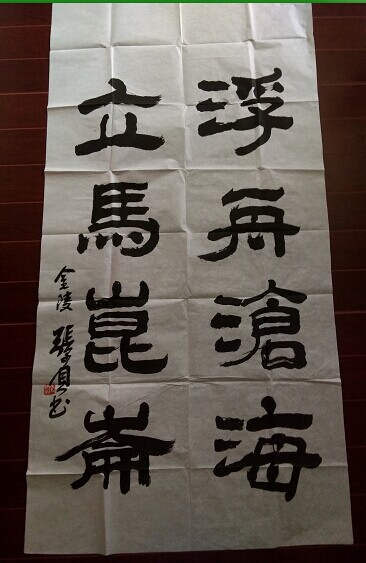 浮舟滄海
立馬崑崙
金陵